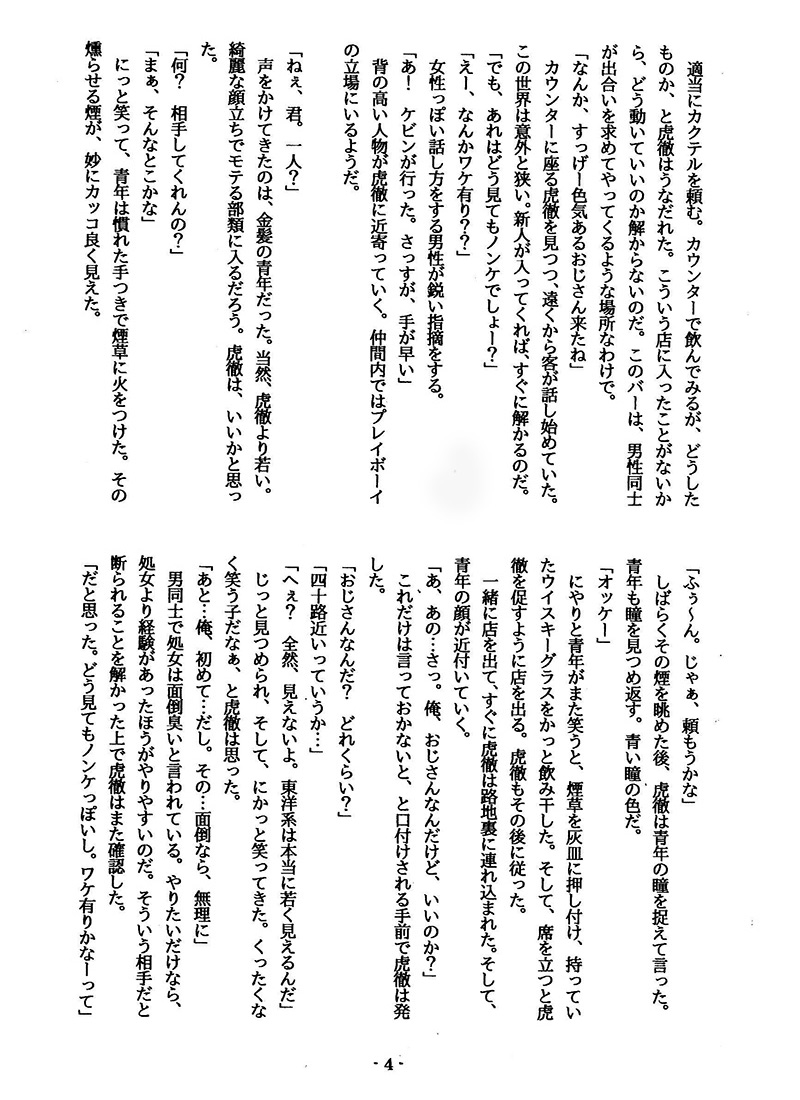 適当にカクテルを頼む。カウンターで飲んでみるが、どうした
ものか、と虎徹はうなだれた。こういう店に入ったことがないか
ら、どう動いていいのか解からないのだ。このバーは、男性同士
が出合いを求めてやってくるような場所なわけで。
「なんか、すっげー色気あるおじさん来たね」
　カウンターに座る虎徹を見つつ、遠くから客が話し始めていた。
この世界は意外と狭い。新人が入ってくれば、すぐに解かるのだ。
「でも、あれはどう見てもノンケでしょー？」
「えー、なんかワケ有り？？」
　女性っぽい話し方をする男性が鋭い指摘をする。
「あ！　ケビンが行った。さっすが、手が早い」
　背の高い人物が虎徹に近寄っていく。仲間内ではプレイボーイ
の立場にいるようだ。
「ねぇ、君。一人？」
　声をかけてきたのは、金髪の青年だった。当然、虎徹より若い。
綺麗な顔立ちでモテる部類に入るだろう。虎徹は、いいかと思っ
た。
「何？　相手してくれんの？」
「まぁ、そんなとこかな」
　にっと笑って、青年は慣れた手つきで煙草に火をつけた。その
燻らせる煙が、妙にカッコ良く見えた。
「ふぅ～ん。じゃぁ、頼もうかな」
　しばらくその煙を眺めた後、虎徹は青年の瞳を捉えて言った。
青年も瞳を見つめ返す。青い瞳の色だ。
「オッケー」
　にやりと青年がまた笑うと、煙草を灰皿に押し付け、持ってい
たウイスキーグラスをかっと飲み干した。そして、席を立つと虎
徹を促すように店を出る。虎徹もその後に従った。
　一緒に店を出て、すぐに虎徹は路地裏に連れ込まれた。そして、
青年の顔が近付いていく。
「あ、あの…さっ。俺、おじさんなんだけど、いいのか？」
　これだけは言っておかないと、と口付けされる手前で虎徹は発
した。
「おじさんなんだ？　どれくらい？」
「四十路近いっていうか…」
「へぇ？　全然、見えないよ。東洋系は本当に若く見えるんだ」
　じっと見つめられ、そして、にかっと笑ってきた。くったくな
く笑う子だなぁ、と虎徹は思った。
「あと…俺、初めて…だし。その…面倒なら、無理に」
　男同士で処女は面倒臭いと言われている。やりたいだけなら、
処女より経験があったほうがやりやすいのだ。そういう相手だと
断られることを解かった上で虎徹はまた確認した。
「だと思った。どう見てもノンケっぽいし。ワケ有りかなーって」
- 4 -